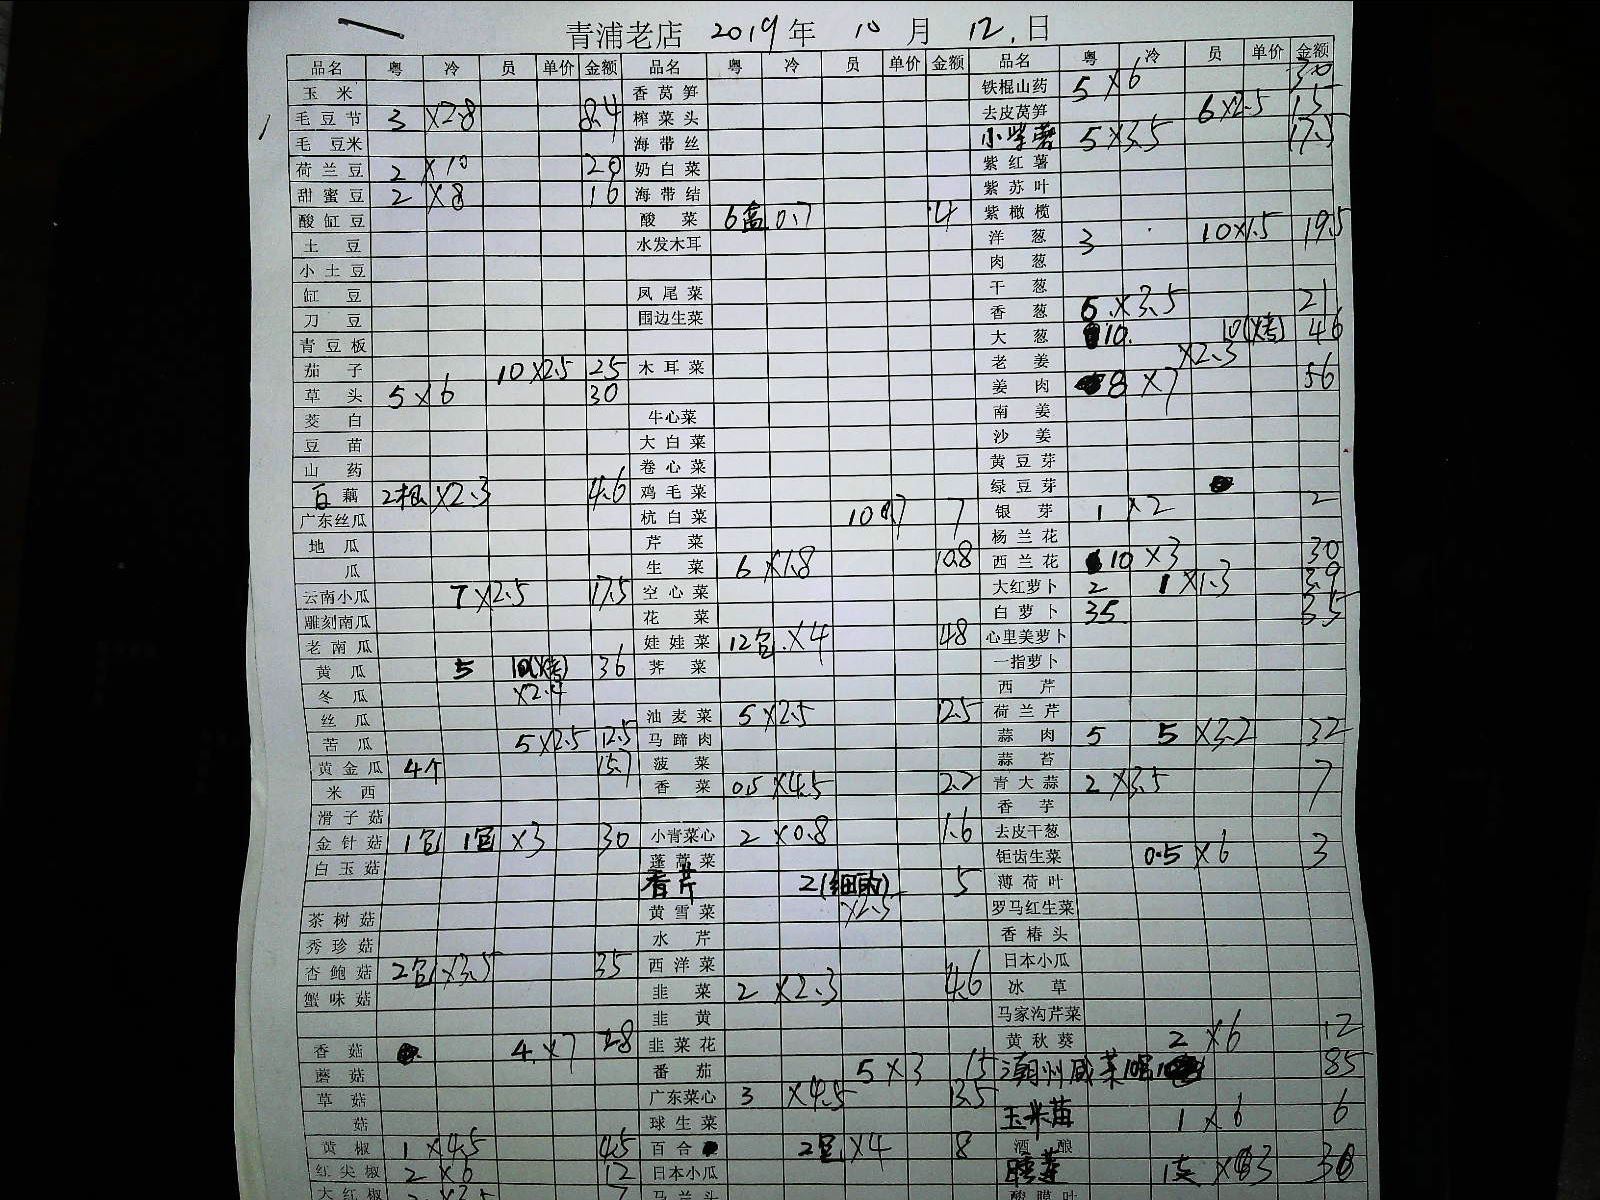 青浦老店 2019年 10月 12.日
品名 粤 冷 员 单价 金额 品名 粤 冷 员 单价 金额 品名 粤 冷 员 单价 金额
玉米 香莴笋 铁棍山药 5×6 30
毛豆节 3 ×2.8 8.4 榨菜头 去皮莴笋 6×2.5 15
毛豆米 海带丝 小紫薯 5×3.5 17.5
荷兰豆 2 ×10 20 奶白菜 紫红薯
甜蜜豆 2 ×8 16 海带结 紫苏叶
酸缸豆 酸菜 6盒 0.7 4 紫橄榄
土豆 水发木耳 洋葱 3 10×1.5 19.5
小土豆 肉葱
缸豆 凤尾菜 干葱
刀豆 围边生菜 香葱 6.×3.5 21
青豆板 大葱 10. 10(烤) 46
茄子 10×2.5 25 木耳菜 老姜 ×2.3
草头 5×6 30 姜肉 8×7 56
茭白 牛心菜 南姜
豆苗 大白菜 沙姜
山药 卷心菜 黄豆芽
白藕 2根 ×2.3 4.6 鸡毛菜 绿豆芽
广东丝瓜 杭白菜 10 0.7 7 银芽 1 ×2 2
地瓜 芹菜 杨兰花
瓜 生菜 6×1.8 10.8 西兰花 10×3 30
云南小瓜 7×2.5 17.5 空心菜 大红萝卜 2 1×1.3 3.9
雕刻南瓜 花菜 白萝卜 35. 35
老南瓜 娃娃菜 12包.×4 48 心里美萝卜
黄瓜 5 10(烤) 36 荠菜 一指萝卜
冬瓜 ×2.4 西芹
丝瓜 油麦菜 5×2.5 12.5 荷兰芹
苦瓜 5×2.5 12.5 马蹄肉 蒜肉 5 5×3.2 32
黄金瓜 4个 15.7 菠菜 蒜苔
米西 香菜 0.5×4.5 2.2 青大蒜 2×3.5 7
滑子菇 香芋
金针菇 1包 1包 ×3 30 小青菜心 2×0.8 1.6 去皮干葱
白玉菇 蓬蒿菜 钜齿生菜 0.5×6 3
香芹 2(细的) 5 薄荷叶
茶树菇 黄雪菜 ×2.5 罗马红生菜
秀珍菇 水芹 香椿头
杏鲍菇 2包×3.5 35 西洋菜 日本小瓜
蟹味菇 韭菜 2×2.3 4.6 冰草
韭黄 马家沟芹菜
香菇 4.×7 28 韭菜花 黄秋葵 2×6 12
蘑菇 番茄 5×3 15 潮州咸菜 85
草菇 广东菜心 3×4.5 13.5
菇 球生菜 玉米苗 1×6 6
黄椒 1×4.5 4.5 百合 2包×4 8 酒酿
红尖椒 2×6 12 日本小瓜 睡莲 1支
大红椒 马兰头 酸膜叶